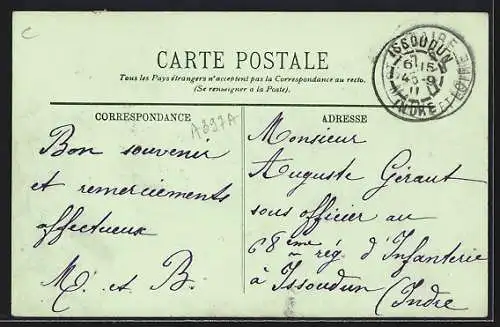 C
CARTE POSTALE
Tous les Pays étrangers n'acceptent pas la Correspondance au recto.
(Se renseigner à la Poste).
ISSOUDUN
6 15
11
INDRE
CORRESPONDANCE
A897A
Bon souvenir
et remerciements
affectueux
M. et B.
ADRESSE
Monsieur
Auguste Géraut
sous officier au
68ème rég. d'Infanterie
à Issoudun (Indre